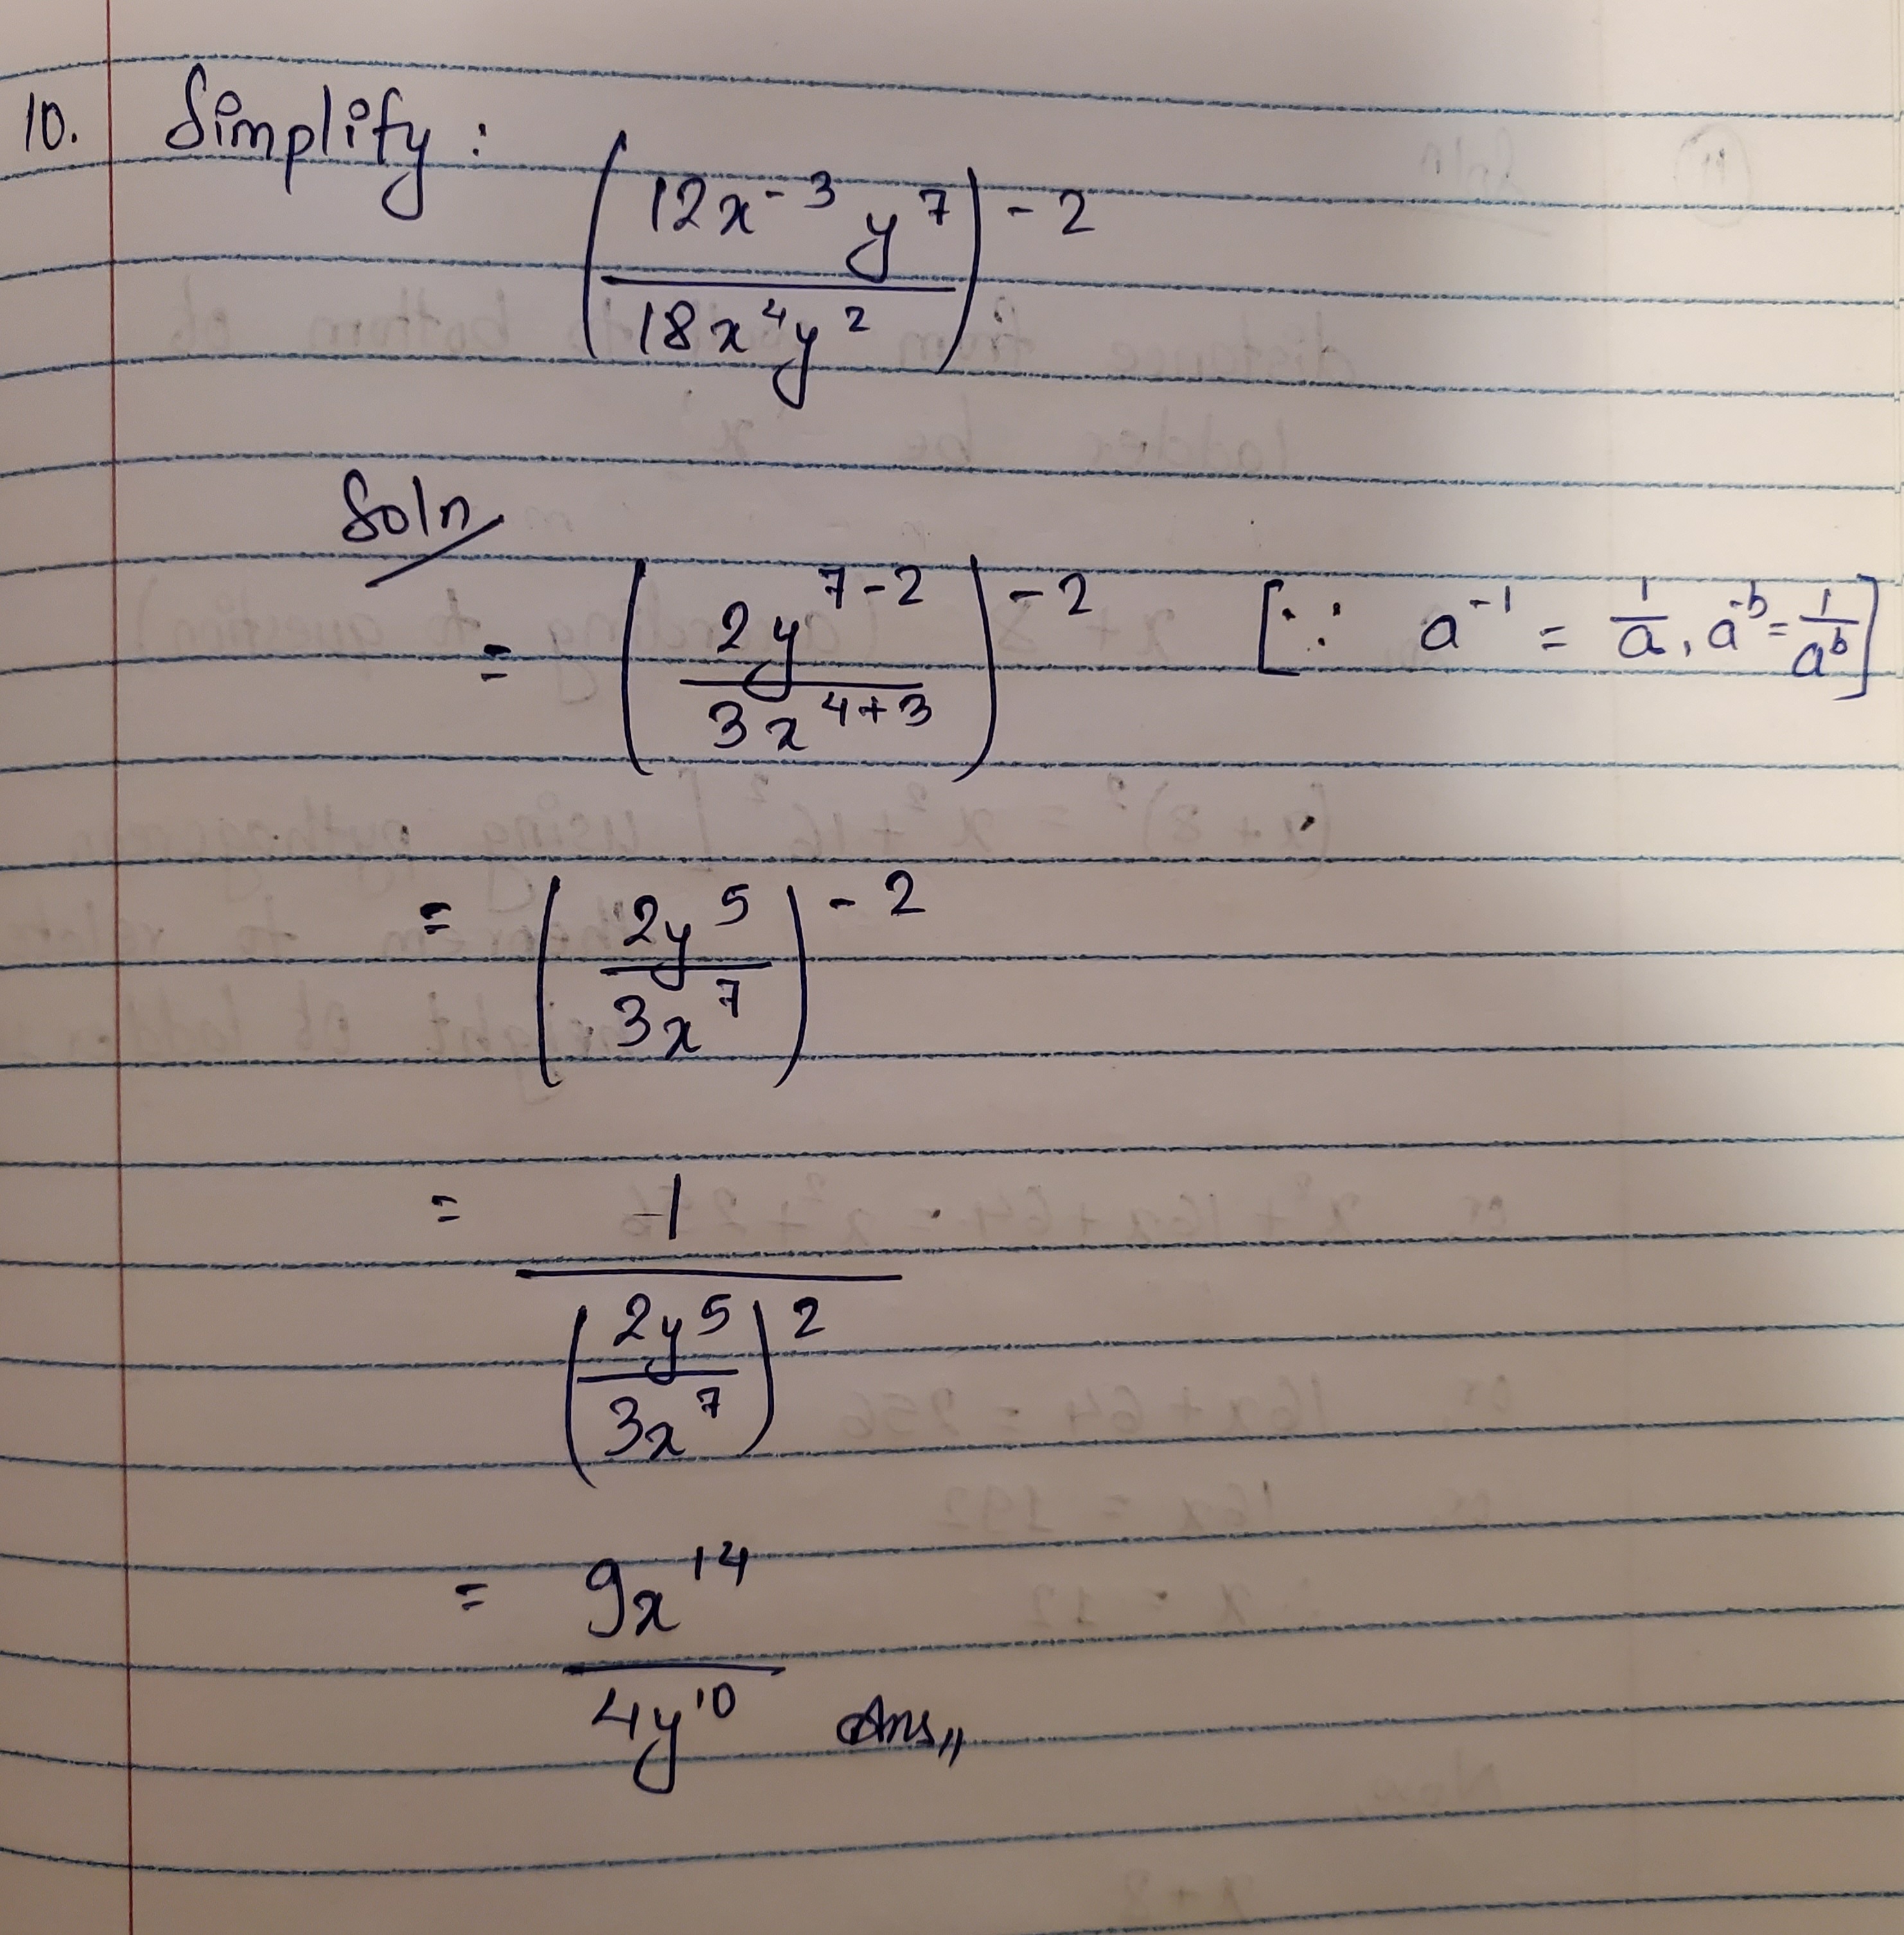 10. Simplify: (12x⁻³y⁷ / 18x⁴y²)⁻²
Soln
= (2y⁷⁻² / 3x⁴⁺³)⁻² [∵ a⁻¹ = 1/a, a⁻ᵇ = 1/aᵇ]
= (2y⁵ / 3x⁷)⁻²
= 1 / (2y⁵ / 3x⁷)²
= 9x¹⁴ / 4y¹⁰ Ans,,